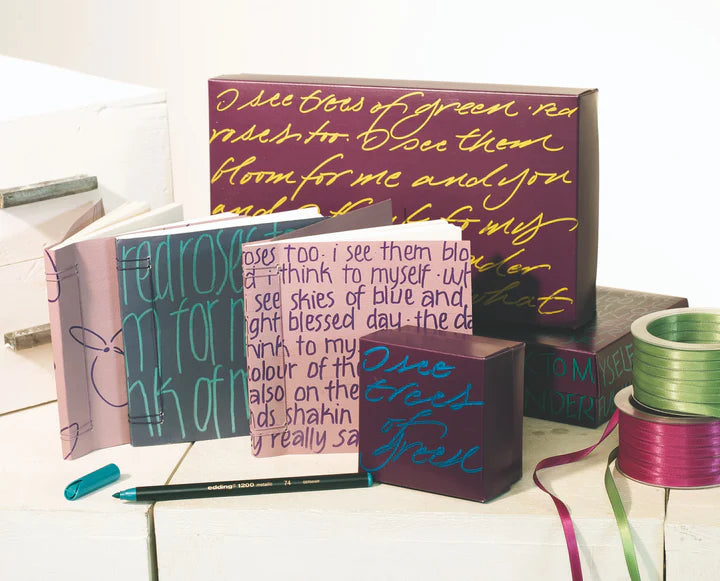 I see trees of green · red
roses too. I see them
bloom for me and you
to my
what
red roses
m for m
nk of m
oses too. i see them blo
i think to myself · wh
see skies of blue and
ght blessed day · the da
think to my
olour of the
also on the
nds shakin
y really sa
I see
trees
of
green
TO MYSELF
NDER
edding® 1200 metallic 74